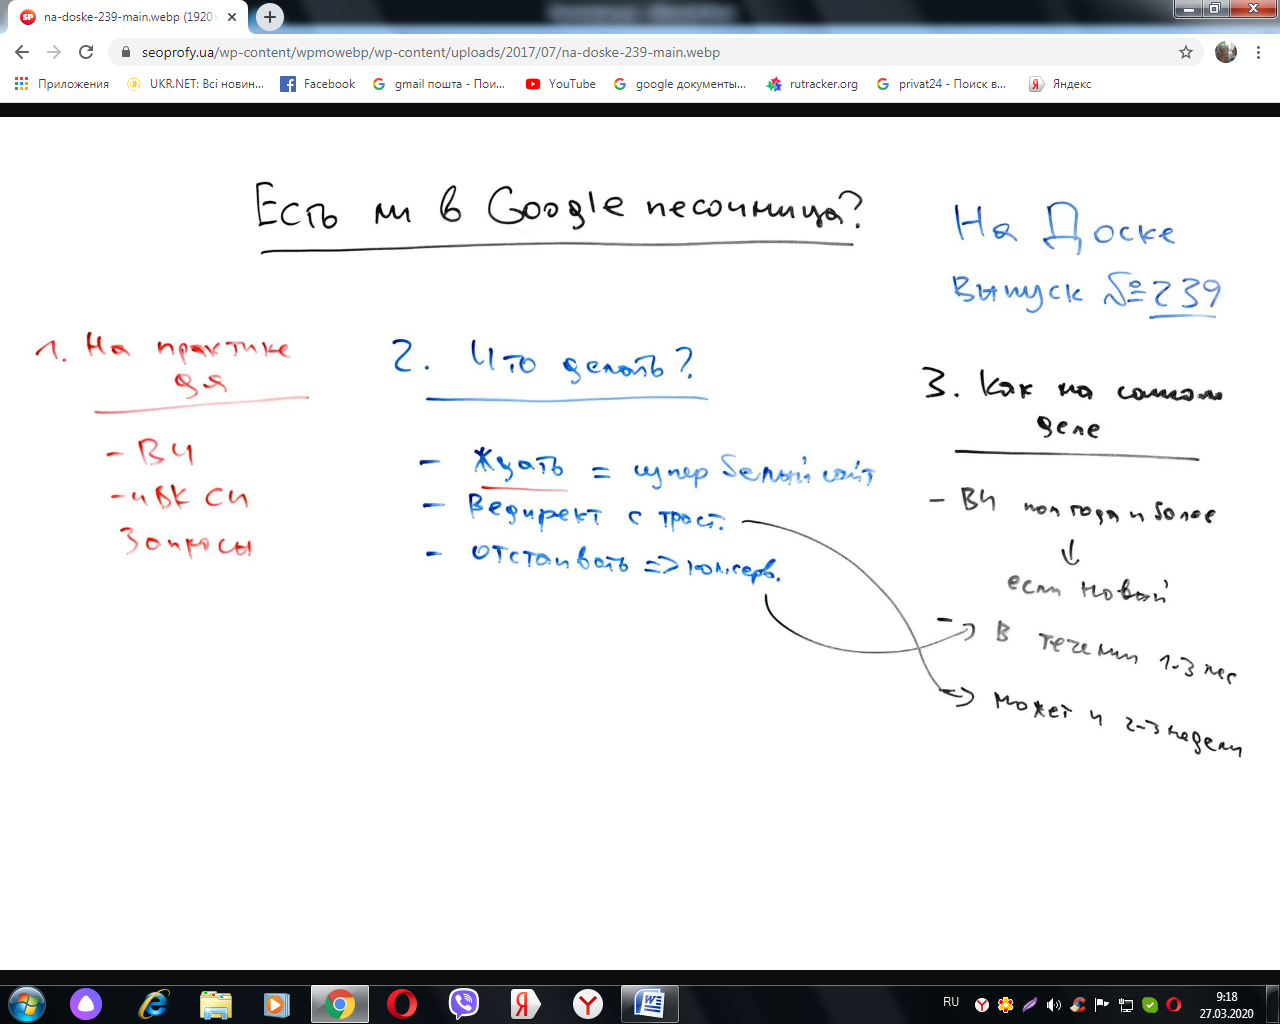 na-doske-239-main.webp (1920×
seoprofy.ua/wp-content/wpmowebp/wp-content/uploads/2017/07/na-doske-239-main.webp
Приложения UKR.NET: Всі новин... Facebook gmail почта - Пои... YouTube google документы... rutracker.org privat24 - Поиск в... Яндекс
Есть ли в Google песочница?
На Доске
Выпуск №239
1. На практике
для
- ВЧ
- и ВК СЧ
Запросы
2. Что делать?
- Ждать = супер белый сайт
- Редирект с траст.
- Отстаивать => консерв.
3. Как на самом
деле
- ВЧ пол года и более
если новый
- В течении 1-3 мес
может и 2-3 недели
RU
9:18
27.03.2020